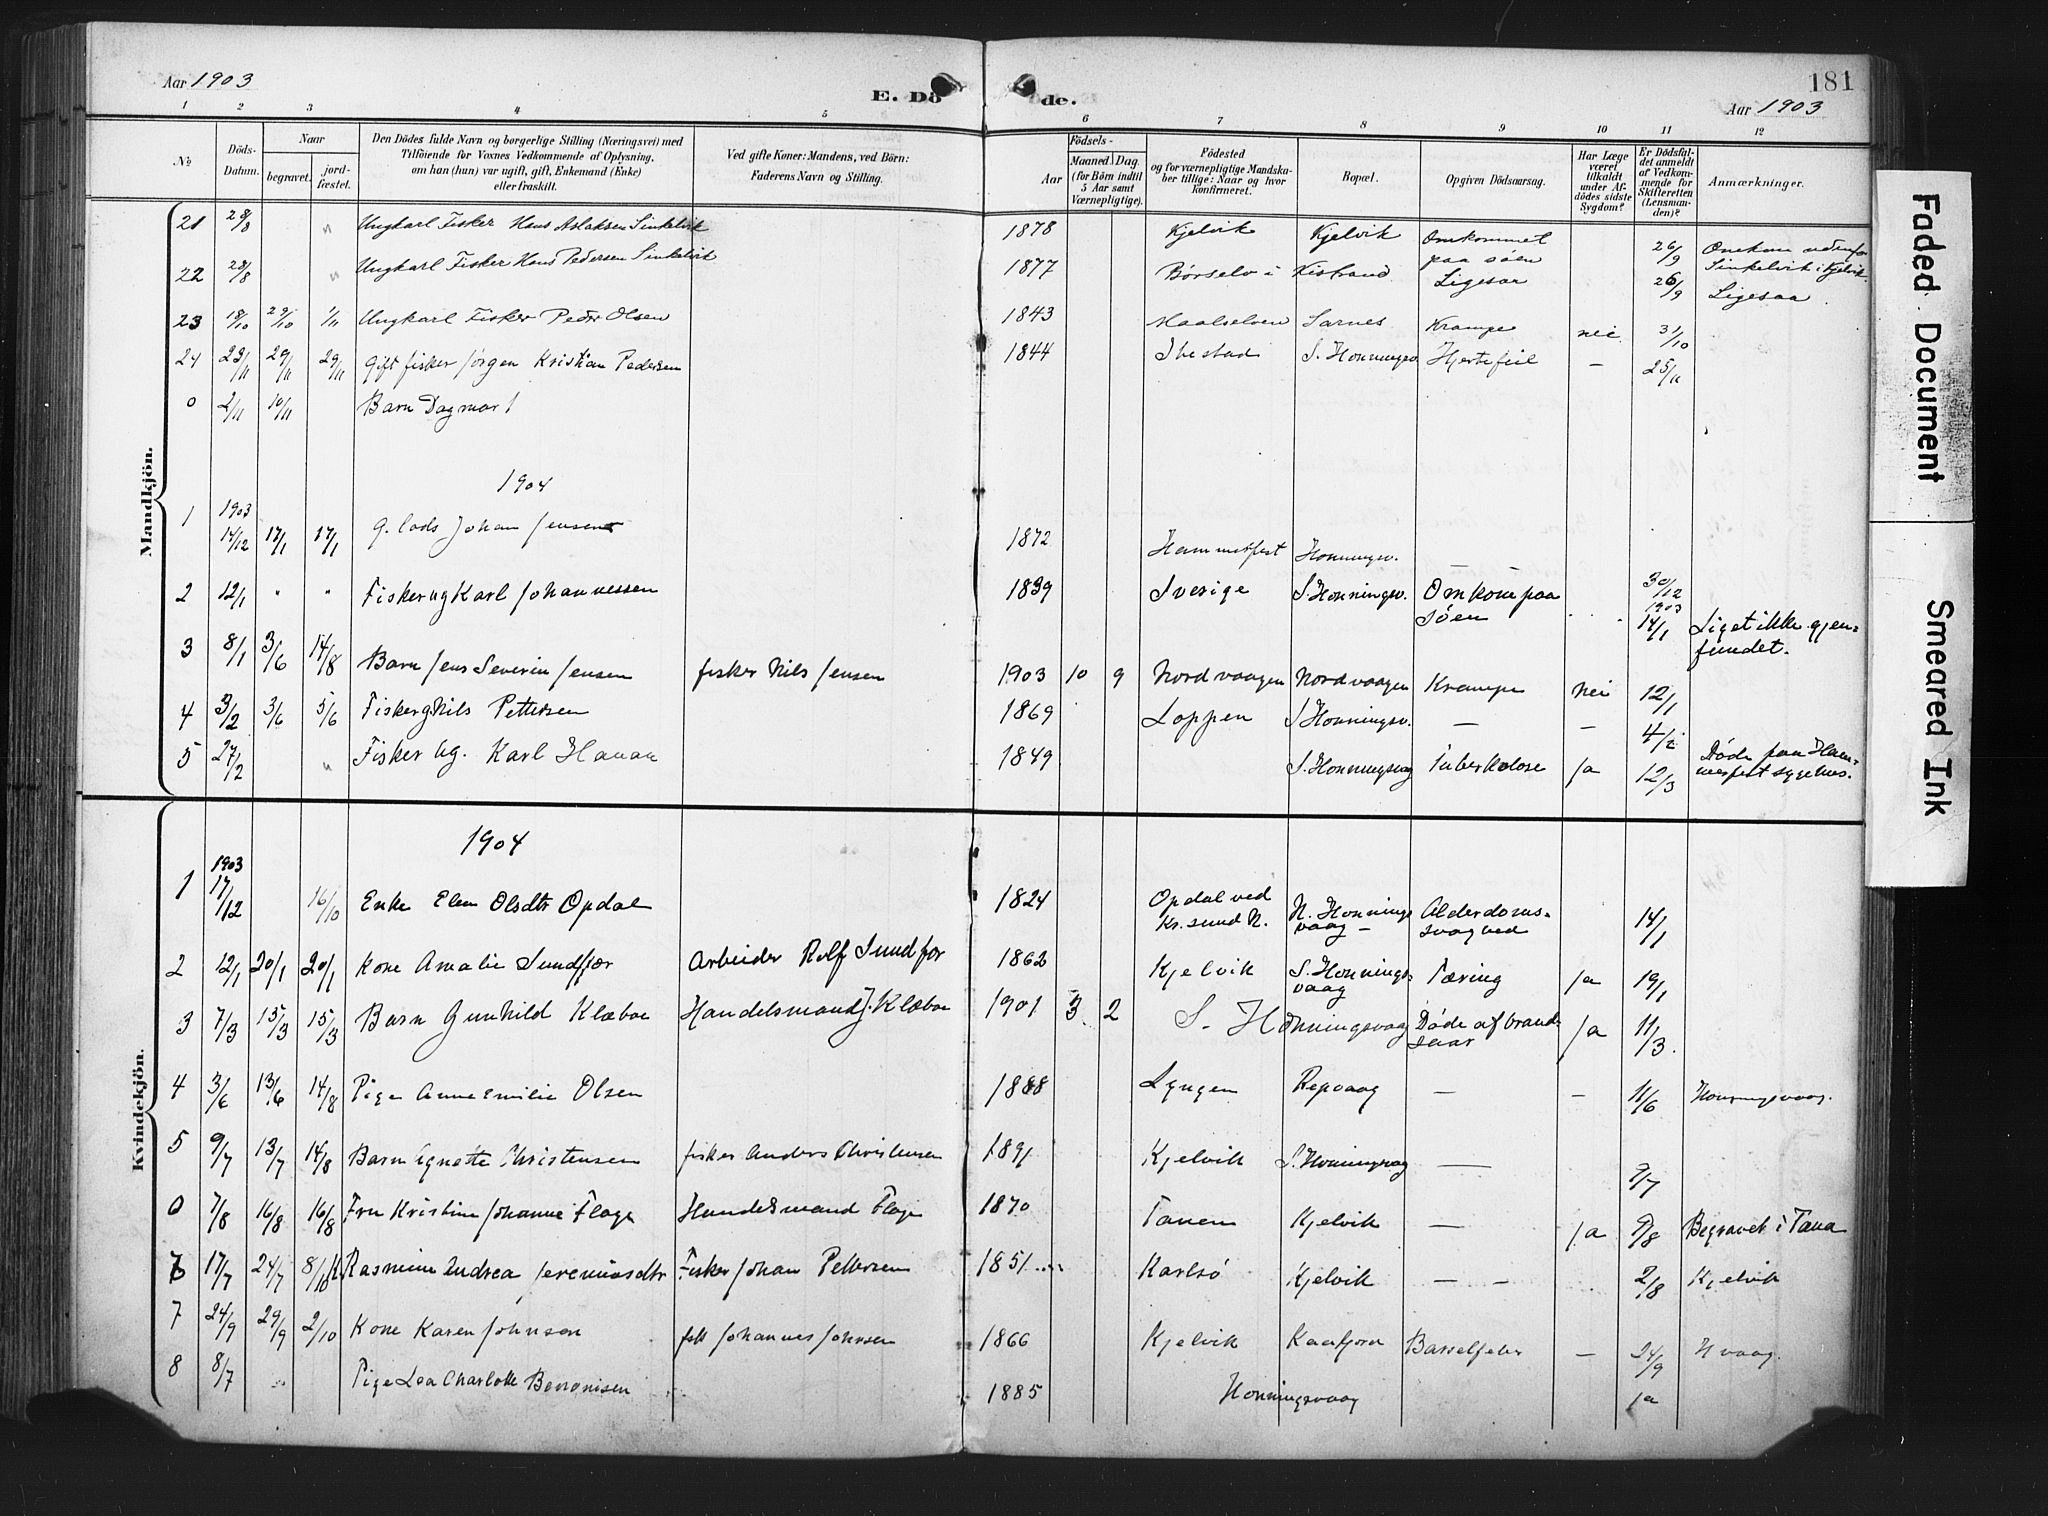 Aar 1903
E. Dö
de.
181
Aar 1903
1 2 3 4 5 6 7 8 9 10 11 12
No
Döds-Datum.
Naar
begravet.
jord-fæstet.
Den Dödes fulde Navn og borgerlige Stilling (Næringsvei) med
Tilföiende for Voxnes Vedkommende af Oplysning,
om han (hun) var ugift, gift, Enkemand (Enke)
eller fraskilt.
Ved gifte Koner: Mandens, ved Börn:
Faderens Navn og Stilling.
Födsels-
Aar
Maaned Dag.
(for Börn indtil
5 Aar samt
Værnepligtige).
Födested
og for værnepligtige Mandska-
ber tillige: Naar og hvor
konfirmeret.
Bopæl.
Opgiven Dödsaarsag.
Har Læge
været
tilkaldt
under Af-
dödes sidste
Sygdom?
Er Dödsfal-
det anmeldt
af Vedkom-
mende for
Skifteretten
(Lensman-
den)?
Anmærkninger.
Mandkjön.
21 28/8 " Ungkarl Fisker Hans Aslaksen Sinkelvik 1878 Kjelvik Kjelvik Omkommet paa söen 26/9 Omkom udenfor Sinkelvik i Kjelvik
22 28/8 " Ungkarl Fisker Hans Pedersen Sinkelvik 1877 Börselv i Kistrand Ligesaa 26/9 Ligesaa.
23 18/10 29/10 1/11 Ungkarl Fisker Peder Olsen 1843 Maalselven Sarnes Krampe nei 31/10
24 23/11 29/11 29/11 gift fisker Jörgen Kristian Pedersen 1844 Ibestad S. Honningsv. Hjertefeil — 25/11
0 2/11 10/11 Barn Dagmar
1904
1 1903 14/12 17/1 17/1 g. Lods Johan Jensen 1872 Hammerfest Honningsv. 30/12 1903
2 12/1 " " Fisker ug Karl Johannessen 1839 Sverige S. Honningsv. Omkom paa Söen 14/1 Liget ikke gjenfundet.
3 8/1 3/6 14/8 Barn Jens Severin Jensen fisker Nils Jensen 1903 10 9 Nordvaagen Nordvaagen Krampe nei 12/1
4 3/2 3/6 5/6 Fisker g Nils Pettersen 1869 Loppen S. Honningsv. — — 4/2
5 27/2 " Fisker ug. Karl 1849 S. Honningsvag Tuberkolose Ja 12/3 Döde paa Hammerfest sygehus.
Kvindekjön.
1904
1 1903 17/12 16/10 Enke Elen Olsdtr Opdal 1824 Opdal ved Kr.sund N. N. Honningsvaag — Alderdomssvaghed 14/1
2 12/1 20/1 20/1 Kone Amalie Sundfær Arbeider Rolf Sundfor 1862 Kjelvik S. Honningsvaag Tæring Ja 19/1
3 7/3 15/3 15/3 Barn Gunhild Klæboe Handelsmand J. Klæboe 1901 3 2 S. Honningsvaag Döde af brandsaar Ja 11/3.
4 3/6 13/6 14/8 Pige Anne Emilie Olsen 1888 Lyngen Repvaag — — 11/6 Honningsvaag.
5 9/7 13/7 14/8 Barn Agnette Christensen fisker Anders Christensen 1891 Kjelvik S. Honningsvag — 9/7
0 7/8 16/8 16/8 Fru Kristine Johanne Flage Handelsmand Flage 1870 Tanen Kjelvik — Ja 9/8 Begravet i Tana
6 17/7 24/7 8/10 K. Rasmine Andrea Jeremiasdtr Fisker Johan Pettersen 1851 Karlsö Kjelvik — — 2/8 Kjelvik
7 24/9 29/9 2/10 Kone Karen Johnsen fisk Johannes Johnsen 1866 Kjelvik Kaafjord Barselfeber — 24/9 H vaag.
8 8/7 Pige Lea Charlotte 1885 Honningsvaag Ja
Faded Document
Smeared Ink